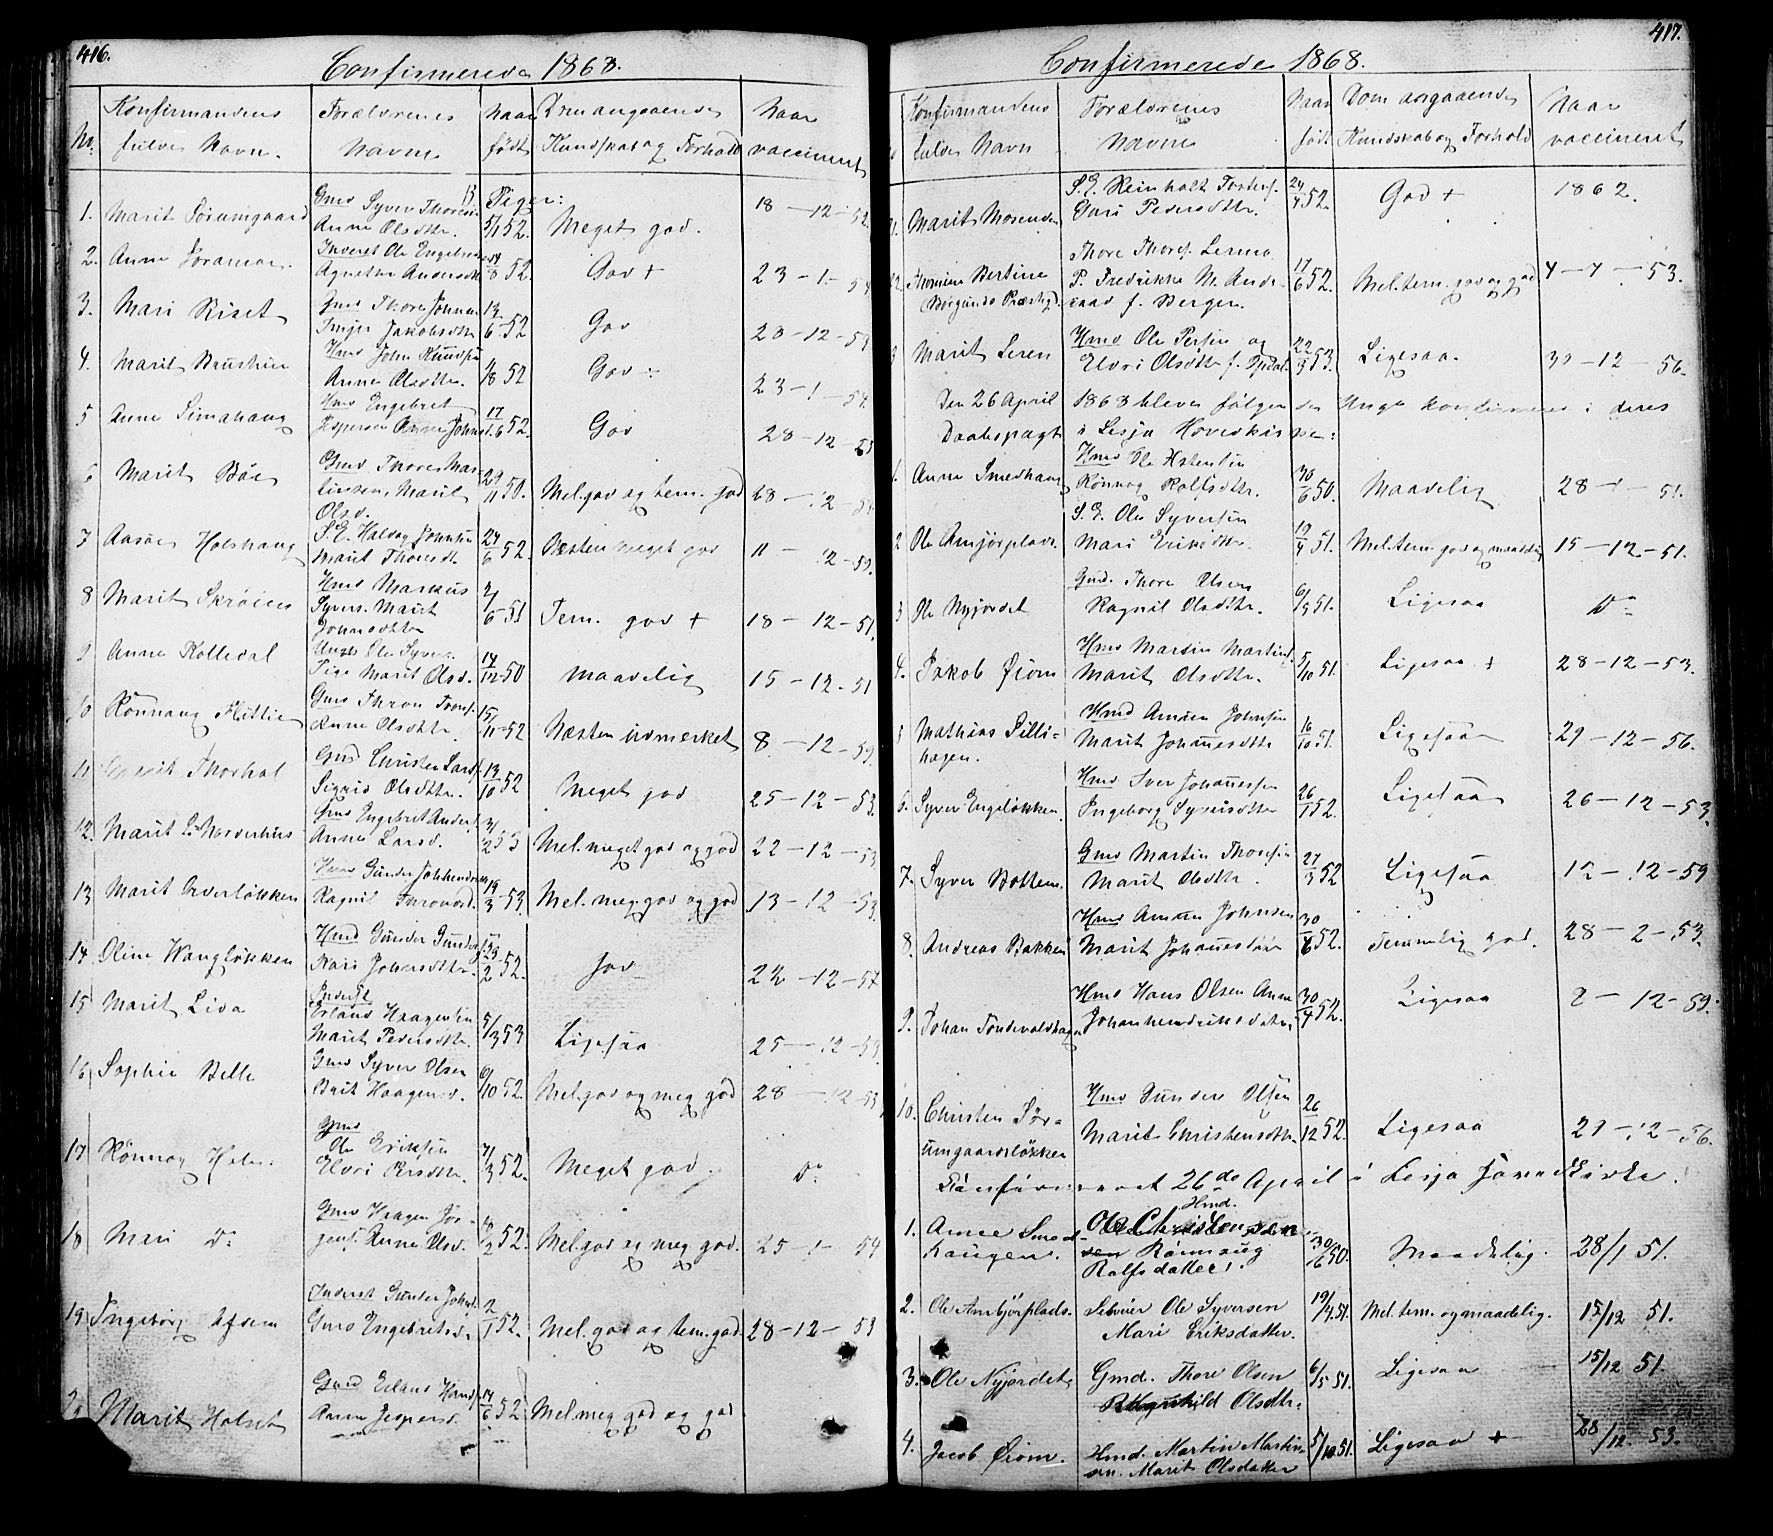 416.
Confirmerede 1868.
No. Konfirmandens fulde Navn. Forældrenes Navne Naar født Dom angaaende Kundskab og Forhold Naar vaccineret
B. Piger:
1. Marit Sörumgaard Gmd Syver Thoresen Anne Olsdtr. 52. Meget god. 18-12-52
2. Anne Joramoe Inderst Ole Engebretsen Agnethe Andersdtr 8 52. God + 23-1-54
3. Mari Riset Gmd Thore Johnsen Jakobsdtr 13/6-52 God 28-12-53
4. Marit Hmd John Knudsen Anne Olsdtr. /8 52 God 23-1-54.
5 Anne Simahaug Hmd Engebret Jespersen Anne Johnsd. 17/6 52. God 28-12-53
6 Marit Böe Gmd Thores Mar- tinsen, Marit Olsd. 29/11 50. Mel. god og tem. god 28-12-
7 Aasne Holshaug S.E. Haldog Johnsen Marit Thoresdtr. 24/6 52 Næsten meget god 11-12-59.
8 Marit Skröien Hmd Markus Syvers. Marit Johnsdtr 2/6 51 Tem. god + 18-12-51.
9 Anne Kolledal Ungk Ole Syver. Pige Marit Olsd. 14/12-50 Maadelig 15-12-51
10 Rönnaug Hittie Gmd Thron Trons. Anne Olsdtr. 15/11-52 Næsten udmerket 8-12-59.
11 Marit Thorhol Gmd Christen Larss. Sigrid Olsdtr. 13/10 52 Meget god 25-12-53.
12. Marit Norderhus Gmd Engebret Anders. Anne Larsd. /2 53 Mel. meget god og god 22-12-53
13 Marit Överløkken Hmd Gunder Johannesen Ragnil 19/3-53. Mel. meg. god og god 13-12-53.
14. Oline Wangløkken Hmd Gunder Gunders. Kari Johnsdtr. 23/2 52. God 22-12-57
15 Marit Lida Inderst Erland Haagensen Marit Pedersdtr. 5/3 53 Ligesaa 25-12-53.
16 Sophie Belle Gmd Syver Olsen Brit Haagensd. 6/10 52. Mel. god og meg god 28-12-53
17 Rönnog Holm Gmd Ole Eriksen Eldri Persdtr. 7/3 52. Meget god. Do
18 Mari Do Gmd Haagen Jör- gens. Anne Olsd. /2 52. Mel. god og meg god. 25-1-54
19 Ingebörg Afsem Inderst Gunder Johns. Guro Engebretsd. 2/1 52. Mel. god og tem. god 28-12-53
20 Marit Holset Gmd Erland Hans. Anne Jespersd. 14/6 52. Mel. meg god og god
417.
Confirmerede 1868.
Konfirmandens fulde Navn Forældrenes Navne Naar født Dom angaaende Kundskab og Forhold Naar vaccineret
21. Marit Mosenden S.E. Reinholt Torsters. Guri Pedersdtr. 24/4 52. God + 1862.
22. Thomine Bertine (Borgunds Præstgj.) Thore Thores. Lermo P. Fredrikke M. Ande- saas f. Bergen. 17/6 52. Mel. tem. god og god 4-4-53.
3 Marit Leren Hmd Ole Persen og Eldri Olsdtr f. Opdal. 22/3 53. Ligesaa 30-12-56.
Den 26 April 1868 bleve følgen de Unge konfirmeret i deres
Daabspagt i Lesja Hovedkirke:
1. Anne Smedhaug Hmd Ole Kstensen Rönnog Rollsdtr. 30/6 50. Maadelig 28-1-51.
2 Ole Amjörplads. S.E. Ole Syversen Mari Eriksdtr. 19/4 51. Mel. tem. god og maadelig 15-12-51.
3 Ole Nyjordet Gmd. Thore Olsen Ragnil Olsdtr. 6/5 51. Ligesaa Do
4. Jakob Øiom Hmd Martin Martins. Marit Olsdtr. 5/10 51. Ligesaa + 28-12-53.
5 Mathias Pilli- hagen. Hmd Amun Johnsen Marit Johannesdtr 16/10 51. Ligesaa 29-12-56.
6. Syver Engeløkken. Hmd Iver Johannessen Ingeborg Syversdtr 26/1 52. Ligesaa 26-12-53.
7. Syver Bottem. Gmd Martin Thoresen Marit Olsdtr. 27/3 52 Ligesaa 12-12-59
8. Andreas Bakken Hmd Amun Johnsen Marit Johannesdtr 30/6 52. Temmelig god. 28-2-53.
9. Johan Tondevoldshagen Hmd Hans Olsen Anne Johanhendriksdatr. 30/4 52. Ligesaa 2-12-59.
10. Christen Sör- umgaardsløkken Hmd Gunder Olsen Marit Christensdtr. 26/12 52. Ligesaa 29-12-56.
Konfirmeret 26de April i Lesja Hovedkirke.
1. Anne Smed- haugen. Hmd. Ole Christensen Rönnaug Rolfsdatter. 30/6 50. Maadelig. 28/1 51.
2. Ole Ambjörplads. Selveier Ole Syversen Mari Eriksdatter. 19/4 51. Mel. tem. og maadelig. 15/12 51.
3. Ole Nyjordet Gmd. Thore Olsen Ragnhild Olsdtr. 6/5 51. Ligesaa 15/12 51.
4. Jacob Øiom. Hmd. Martin Martin- sen. Marit Olsdatter 5/10 51. Ligesaa + 28/12. 53.